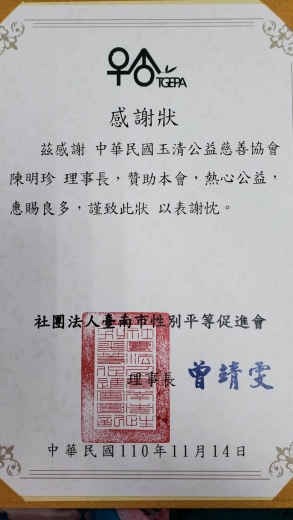 TGEPA
感謝狀
茲感謝 中華民國玉清公益慈善協會
陳明珍 理事長，贊助本會，熱心公益，
惠賜良多，謹致此狀 以表謝忱。
社團法人臺南市性別平等促進會
理事長 曾靖雯
中華民國110年11月14日